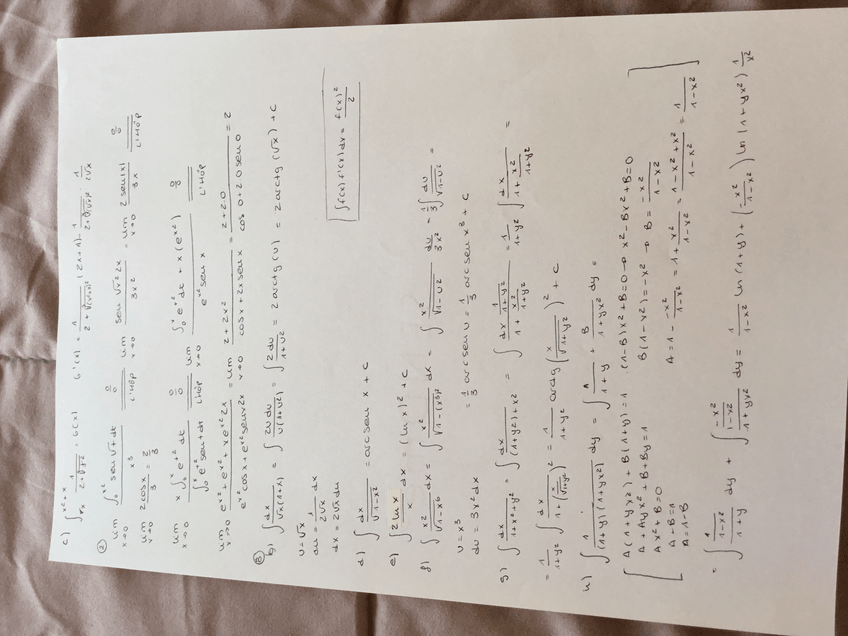 c) ∫_{√x}^{x²+x} 1/(2+√t²) = G(x)   G'(x) = 1/(2+√(x²+x)²) (2x+1) - 1/(2+√(√x)²) · 1/(2√x)
② lim_{x→0} ∫_0^{x²} sen√t dt / x³ =(0/0, L'Hôp) lim_{x→0} sen√x² 2x / 3x² = lim_{x→0} 2 sen|x| / 3x =(0/0, L'Hôp)
lim_{x→0} 2cosx/3 = 2/3
lim_{x→0} x∫_0^x e^{t²} dt / ∫_0^x e^{t²} sen t dt =(0/0, L'Hôp) lim_{x→0} ∫_0^x e^{t²} dt + x(e^{x²}) / e^{x²} sen x =(0/0, L'Hôp)
lim_{x→0} e^{x²} + e^{x²} + x e^{x²} 2x / e^{x²} cos x + e^{x²} sen x 2x = lim_{x→0} 2+2x² / cosx + 2x senx = 2+2·0 / cos 0 + 2·0 sen 0 = 2
b) ∫ dx/(√x(1+x)) = ∫ 2u du/(u(1+u²)) = ∫ 2du/(1+u²) = 2 arctg(u) = 2 arctg(√x) + C
u = √x
du = 1/(2√x) dx
dx = 2√x du
∫ f(x) f'(x) dx = f(x)²/2
d) ∫ dx/√(1-x²) = arcsen x + c
e) ∫ 2 ln x / x dx = (ln x)² + c
f) ∫ x²/√(1-x⁶) dx = ∫ x²/√(1-(x³)²) dx = ∫ x²/√(1-u²) du/3x² = 1/3 ∫ du/√(1-u²) =
u = x³
du = 3x² dx
= 1/3 arcsen u = 1/3 arcsen x³ + c
g) ∫ dx/(1+x²+y²) = ∫ dx/((1+y²)+x²) = ∫ dx 1/(1+y²) / (1 + x²/(1+y²)) = 1/(1+y²) ∫ dx/(1 + x²/(1+y²)) =
= 1/(1+y²) ∫ dx/(1+(x/√(1+y²))²) = 1/(1+y²) arctg(x/√(1+y²))² + c
h) ∫ 1/((1+y)(1+yx²)) dy = ∫ A/(1+y) + B/(1+yx²) dy =
A(1+yx²) + B(1+y) = 1   (1-B)x²+B=0 → x²-Bx²+B=0
A + Ayx² + B + By = 1   B(1-x²) = -x² → B = -x²/(1-x²)
Ax²+B=0
A+B=1
A=1-B   A = 1 - -x²/(1-x²) = 1 + x²/(1-x²) = 1-x²+x²/(1-x²) = 1/(1-x²)
= ∫ 1/(1-x²) / (1+y) dy + ∫ -x²/(1-x²) / (1+yx²) dy = 1/(1-x²) ln(1+y) + (-x²/(1-x²)) ln(1+yx²) 1/x²